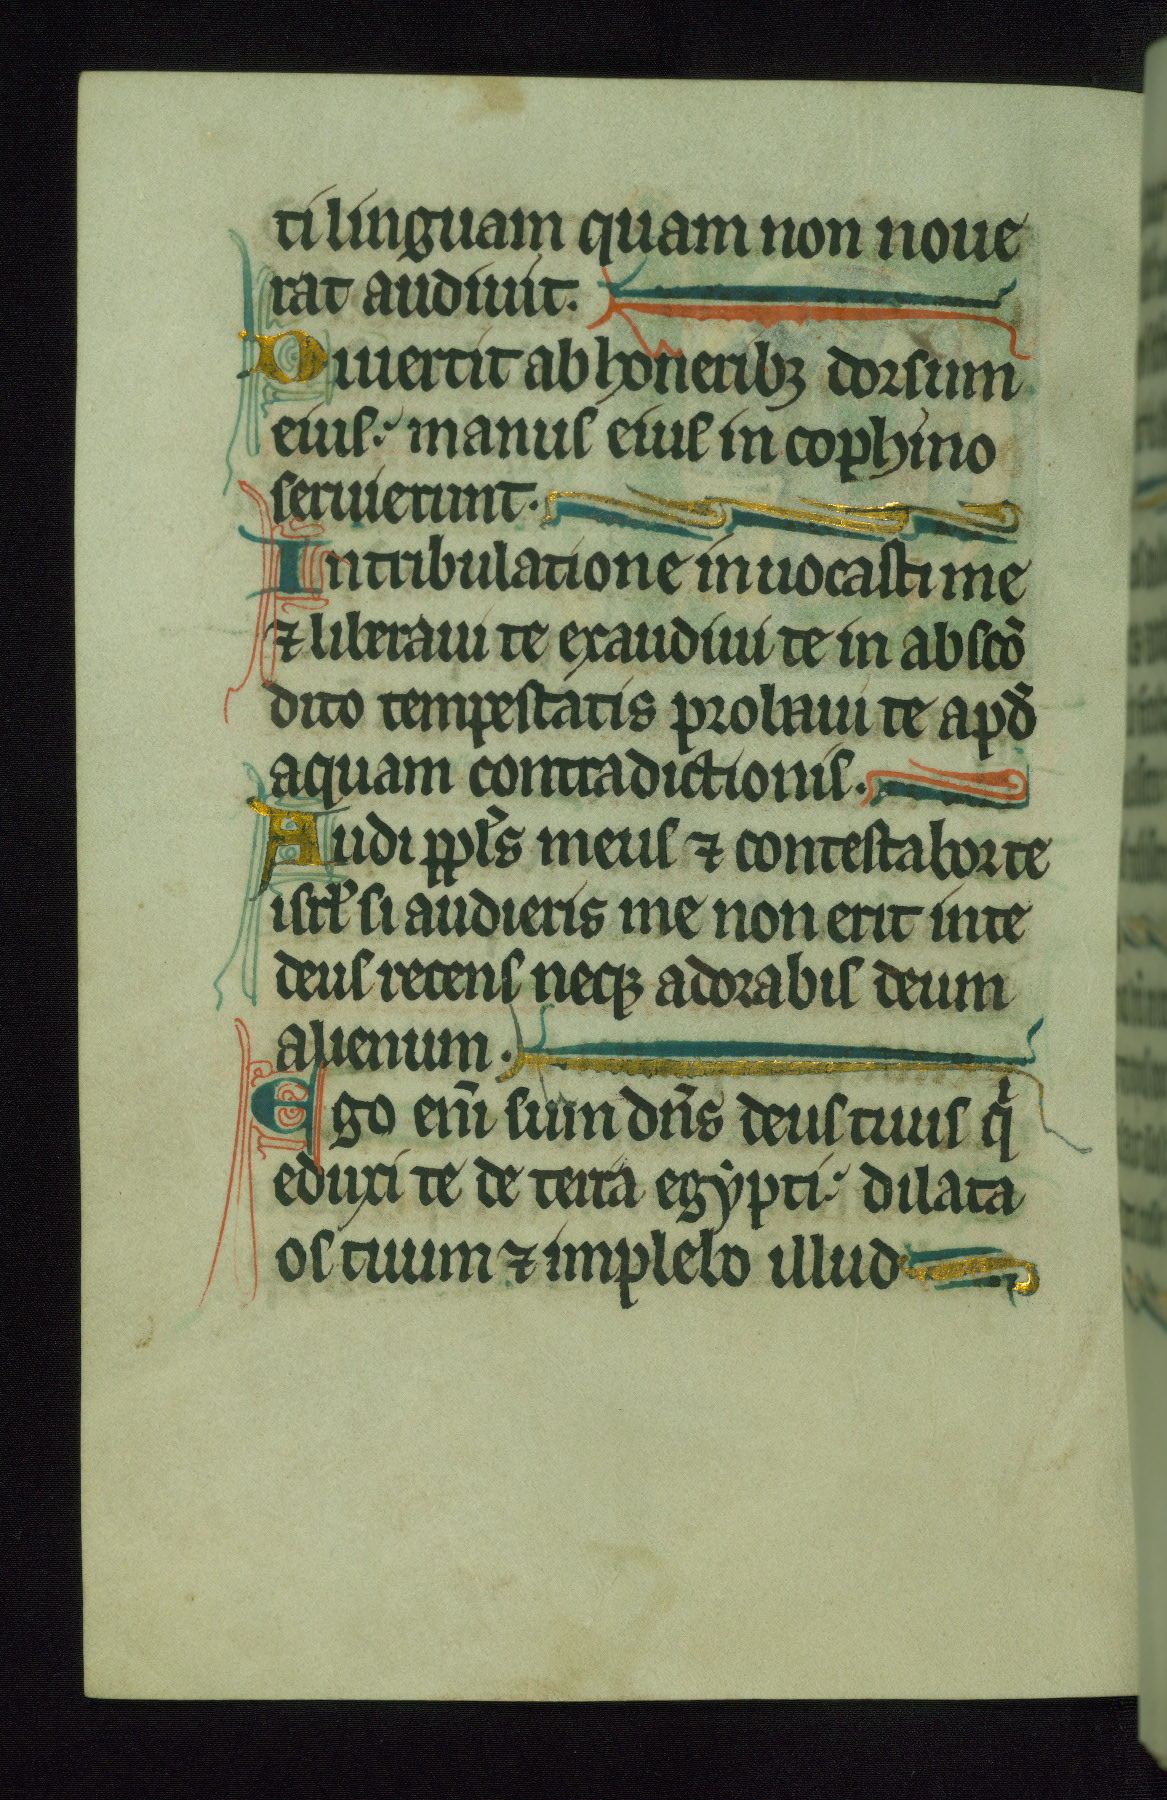 ti linguam quam non noue
rat audiuit.
Diuertit ab honeribꝫ dorsum
eius: manus eius in cophino
seruierunt.
In tribulatione inuocasti me
⁊ liberaui te exaudiui te in abscō
dito tempestatis probaui te apđ
aquam contradictionis.
Audi ppľs meus ⁊ contestabor te
isrľ si audieris me non erit in te
deus recens neqꝫ adorabis deum
alienum.
Ego eni̅ sum dn̅s deus tuus qͥ
eduxi te de terra egẏpti: dilata
os tuum ⁊ implebo illud